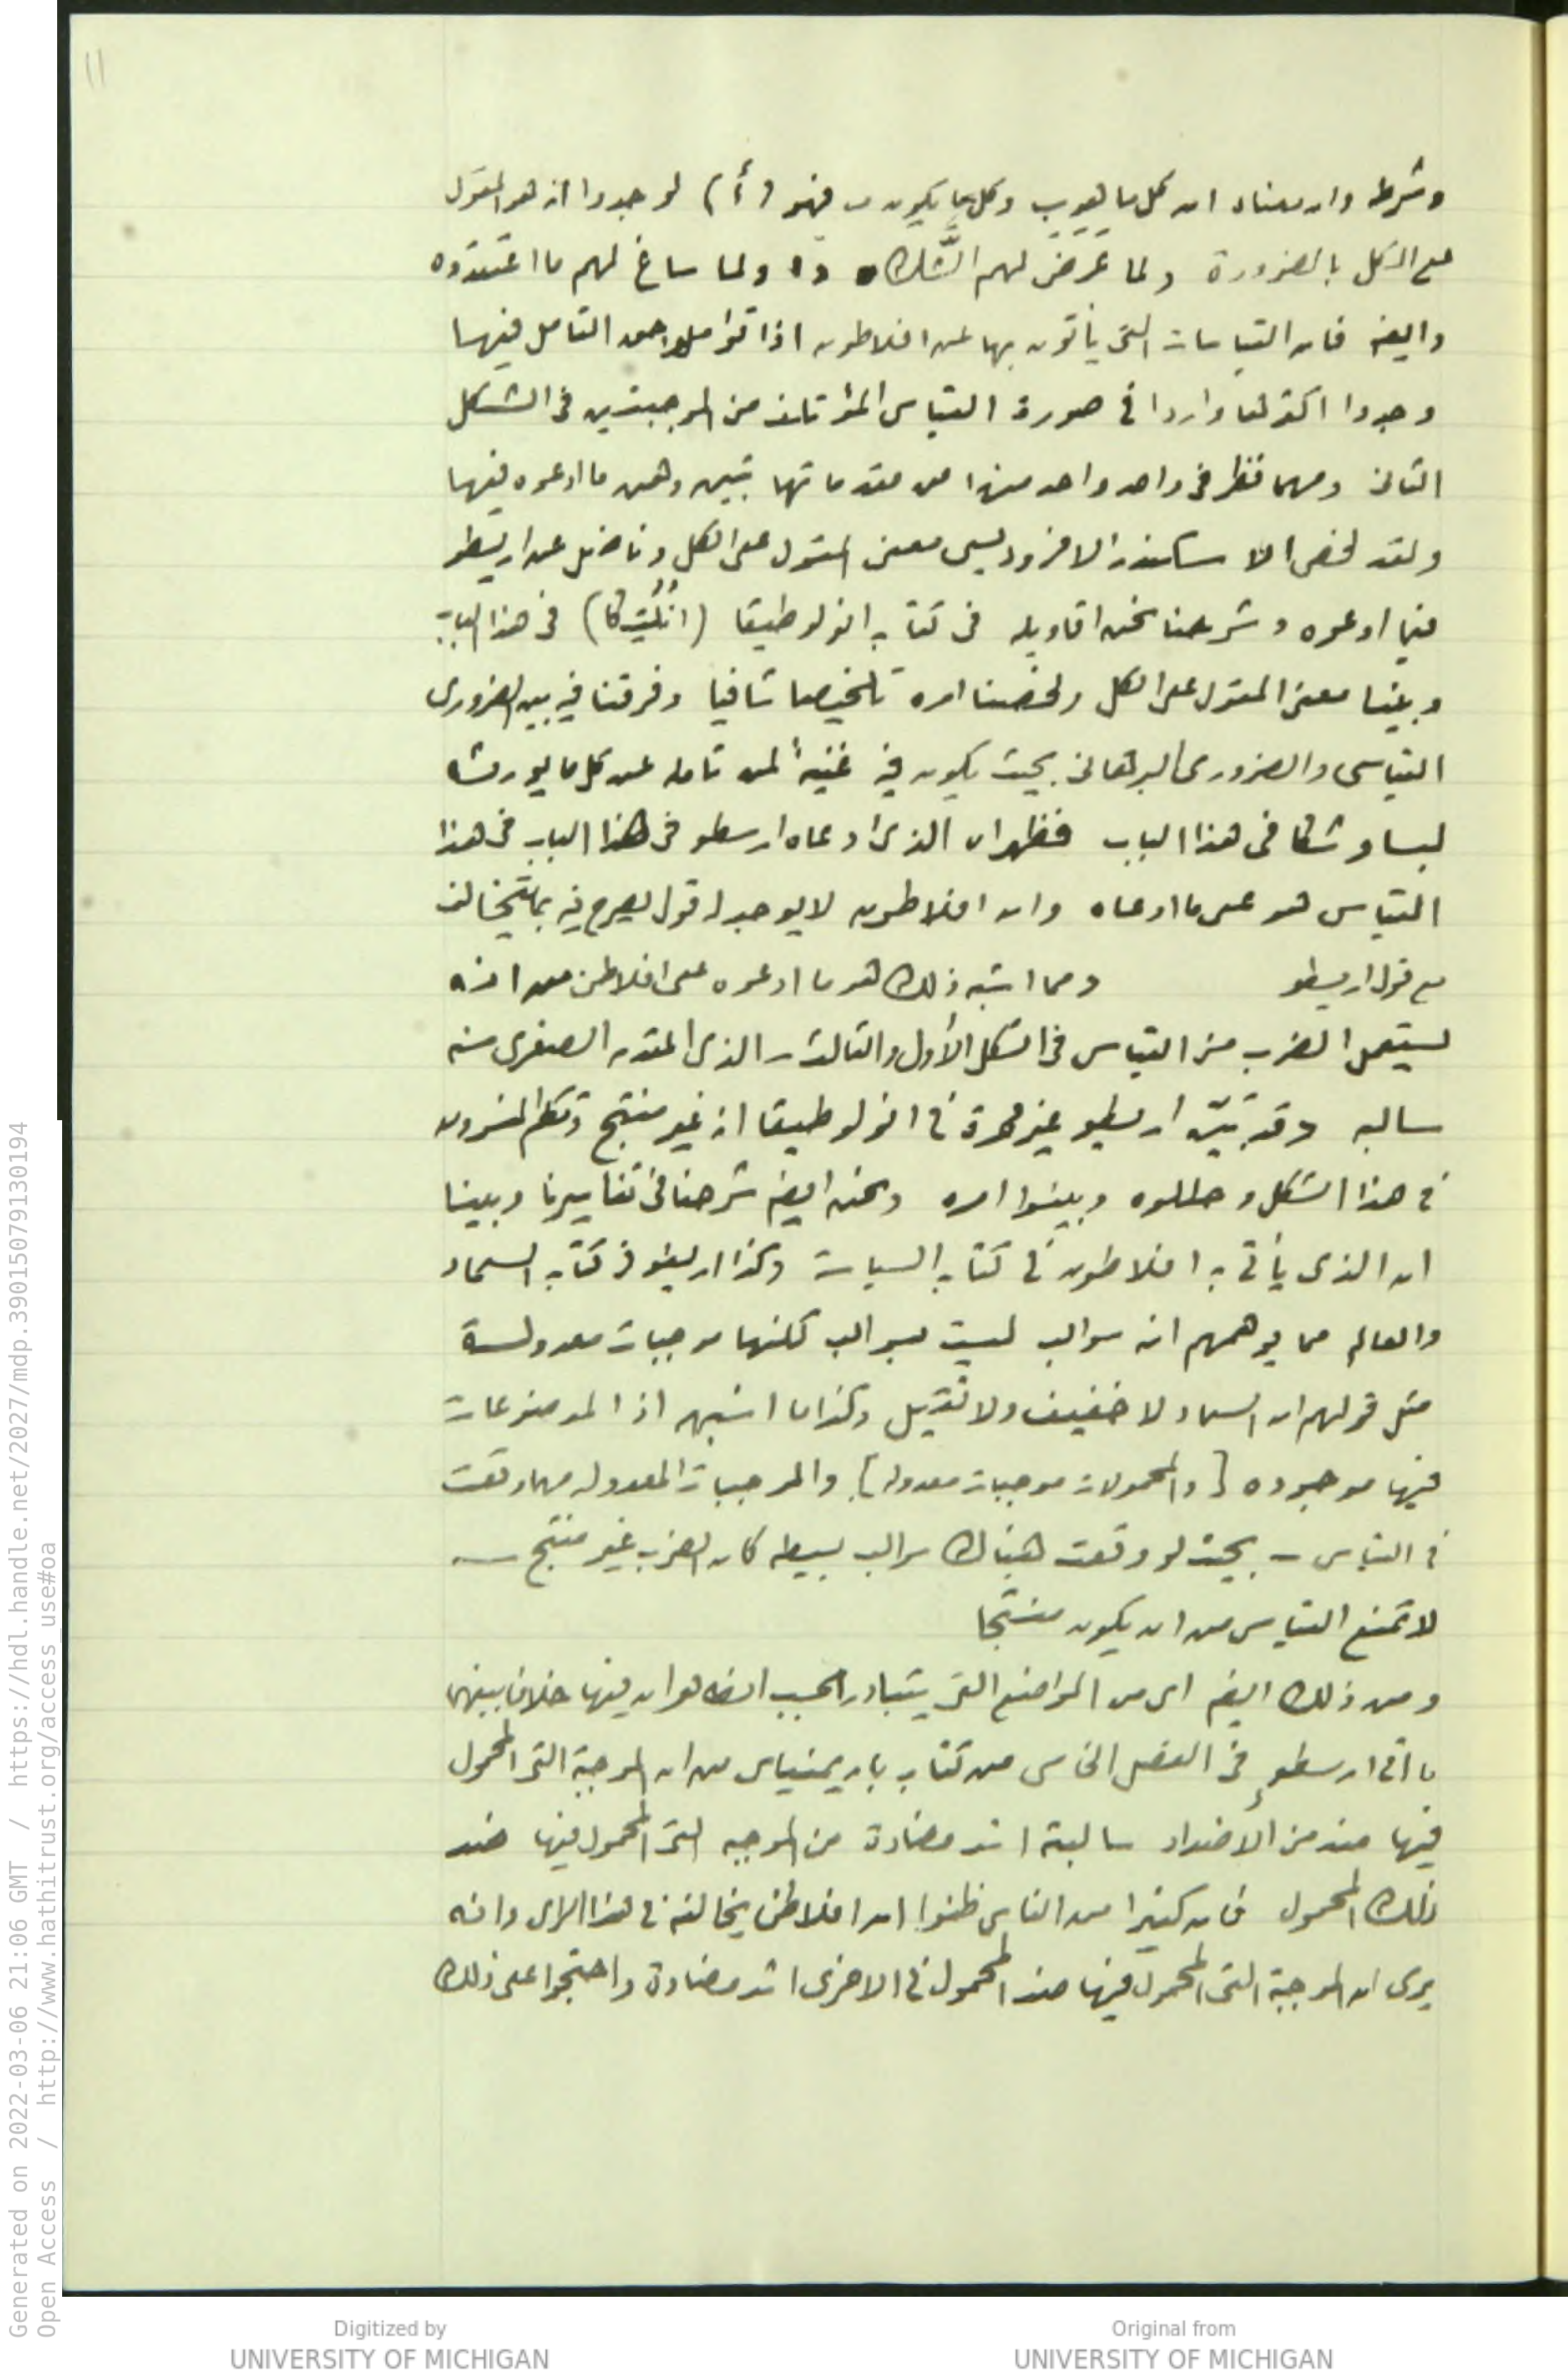 11
وشرطه وان معناه ان كل ما هو ب وكل ما يكون ب فهو (أ) لوجدوا انه هو المقول
على الكل بالضرورة ولما عَرَضَ لهم الشَّك ولما ساغ لهم ما اعتقدوه
وايضه فان القياسات التى يأتون بها عن افلاطون اذا تؤاملوا حق التامل فيها
وجدوا اكثرها واردا فى صورة القياس المؤتلف من الموجبتين فى الشكل
الثانى ومهما نظر فى واحد واحد منها من مقدماتها تبين وهن ما ادعوه فيها
ولقد لخص الاسكندر الافروديسى معنى المقول على الكل وناضل عن ارسطو
فيما ادعوه وشرحنا نحن اقاويله فى كتاب انولوطيقا فى هذا الباب
وبينا معنى المقول على الكل ولخصنا امره تلخيصا شافيا وفرقنا فيه بين الضرورى
القياسى والضرورى البرهانى بحيث يكون فيه غنيةٌ لمن تامله عن كل ما يورثه
لبسا وشكا فى هذا الباب فظهر ان الذى ادعاه ارسطو فى هذا الباب فى هذا
القياس هو على ما ادعاه وان افلاطون لا يوجد له قول يصرح فيه بما يخالف
مع قول ارسطو ومما اشبه ذلك هو ما ادعوه على افلاطن من انه
يستعمل الضرب من القياس فى الشكل الأول والثالث ــ الذى المقدمه الصغرى منه
سالبه وقد تبيّن ارسطو غير مرة فى انولوطيقا انه غير منتج وتكلم المفسرون
فى هذا الشكل وحللوه وبينوا امره ونحن ايضه شرحنا فى تفاسيرنا وبينا
ان الذى يأتى به افلاطون فى كتاب السياسة وكذا ارسطو فى كتاب السماء
والعالم مما يوهمهم انه سوالب ليست بسوالب لكنها موجبات معدولة
مثل قولهم ان السماء لا خفيف ولا ثقيل وكذا ما اشبهه اذ الموضوعات
فيها موجوده [والمحمولات موجبات معدوله] والموجبات المعدوله مهما وقعت
فى القياس ــ بحيث لو وقعت هناك سوالب بسيطه كان الضرب غير منتج ــ
لا تمنع القياس من ان يكون منتجا
ومن ذلك ايضه اى من المواضع التى يتبادر بحسب الظاهر ان فيها خلاف بينهما
ما اتى ارسطو فى الفصل الخامس من كتاب باريمنياس من ان الموجبة التى المحمول
فيها ضد من الأضداد سالبة اشد مضادة من الموجبه التى المحمول فيها ضد
ذلك المحمول فان كثيرا من الناس ظنوا ان افلاطن يخالفه فى هذا الراى وانه
يرى ان الموجبة التى المحمول فيها ضد المحمول فى الاخرى اشد مضادة واحتجوا على ذلك
Generated on 2022-03-06 21:06 GMT / https://hdl.handle.net/2027/mdp.39015079130194
Open Access / http://www.hathitrust.org/access_use#oa
Digitized by
UNIVERSITY OF MICHIGAN
Original from
UNIVERSITY OF MICHIGAN